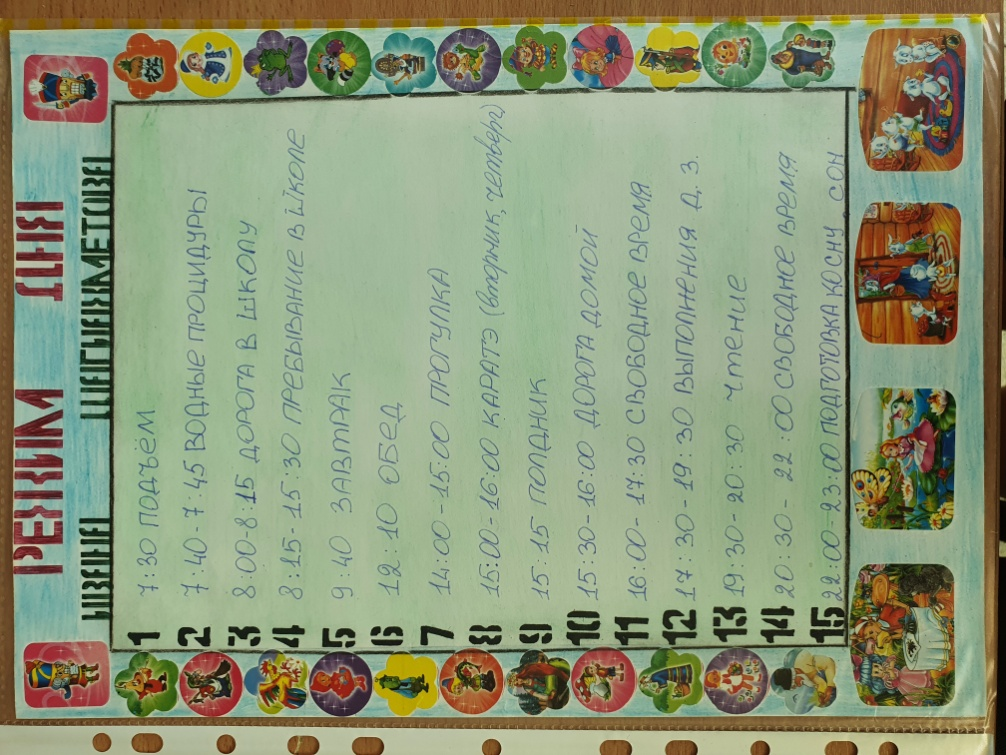 РЕЖИМ ДНЯ
1 7:30 ПОДЪЁМ
2 7:40-7:45 ВОДНЫЕ ПРОЦИДУРЫ
3 8:00-8:15 ДОРОГА В ШКОЛУ
4 8:15-15:30 ПРЕБЫВАНИЕ В ШКОЛЕ
5 9:40 ЗАВТРАК
6 12:10 ОБЕД
7 14:00-15:00 ПРОГУЛКА
8 15:00-16:00 КАРАТЭ (вторник, четверг)
9 15:15 ПОЛДНИК
10 15:30-16:00 ДОРОГА ДОМОЙ
11 16:00-17:30 СВОБОДНОЕ ВРЕМЯ
12 17:30-19:30 ВЫПОЛНЕНИЯ Д. З.
13 19:30-20:30 Чтение
14 20:30-22:00 СВОБОДНОЕ ВРЕМЯ
15 22:00-23:00 ПОДГОТОВКА КО СНУ, СОН